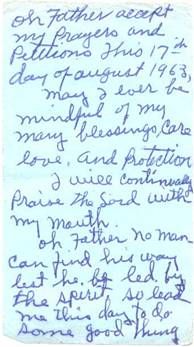 Oh, Father accept
my Prayers and
Petitions This 17th
day of august 1963,
may I ever be
mindful of my
many blessings, Care
love, and Protection
I will continually
Praise the Lord with
my Mouth.
Oh, Father no man
can find his way
lest he. be led by
the spirit so lead
me this day to do
some good Thing